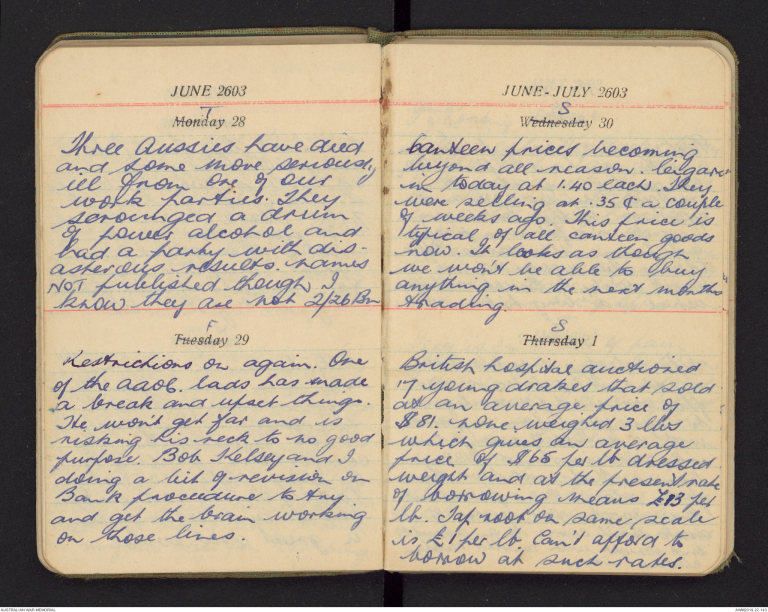 JUNE 2603
T
Monday 28
Three Aussies have died
and some more seriously
ill from one of our
work parties. They
scrounged a drum
of power alcohol and
had a party with dis-
asterous results. names
NOT published though I
know they are not 2/26 Bn
F
Tuesday 29
Restrictions on again. One
of the aaob. lads has made
a break and upset things.
He won't get far and is
risking his neck to no good
purpose. Bob Kelsey and I
doing a bit of revision on
Bank procedure to try
and get the brain working
on those lines.
JUNE-JULY 2603
S
Wednesday 30
Canteen prices becoming
beyond all reason. Cigars
in today at 1.40 each. They
were selling at .35 ¢ a couple
of weeks ago. This price is
typical of all canteen goods
now. It looks as though
we won't be able to buy
anything in the next months
trading.
S
Thursday 1
British hospital auctioned
17 young drakes that sold
at an average price of
$81. none weighed 3 lbs
which gives an average
price of $65 per lb dressed
weight and at the present rate
of borrowing means £13 per
lb. Tap root on same scale
is £1 per lb. Can't afford to
borrow at such rates.
AUSTRALIAN WAR MEMORIAL